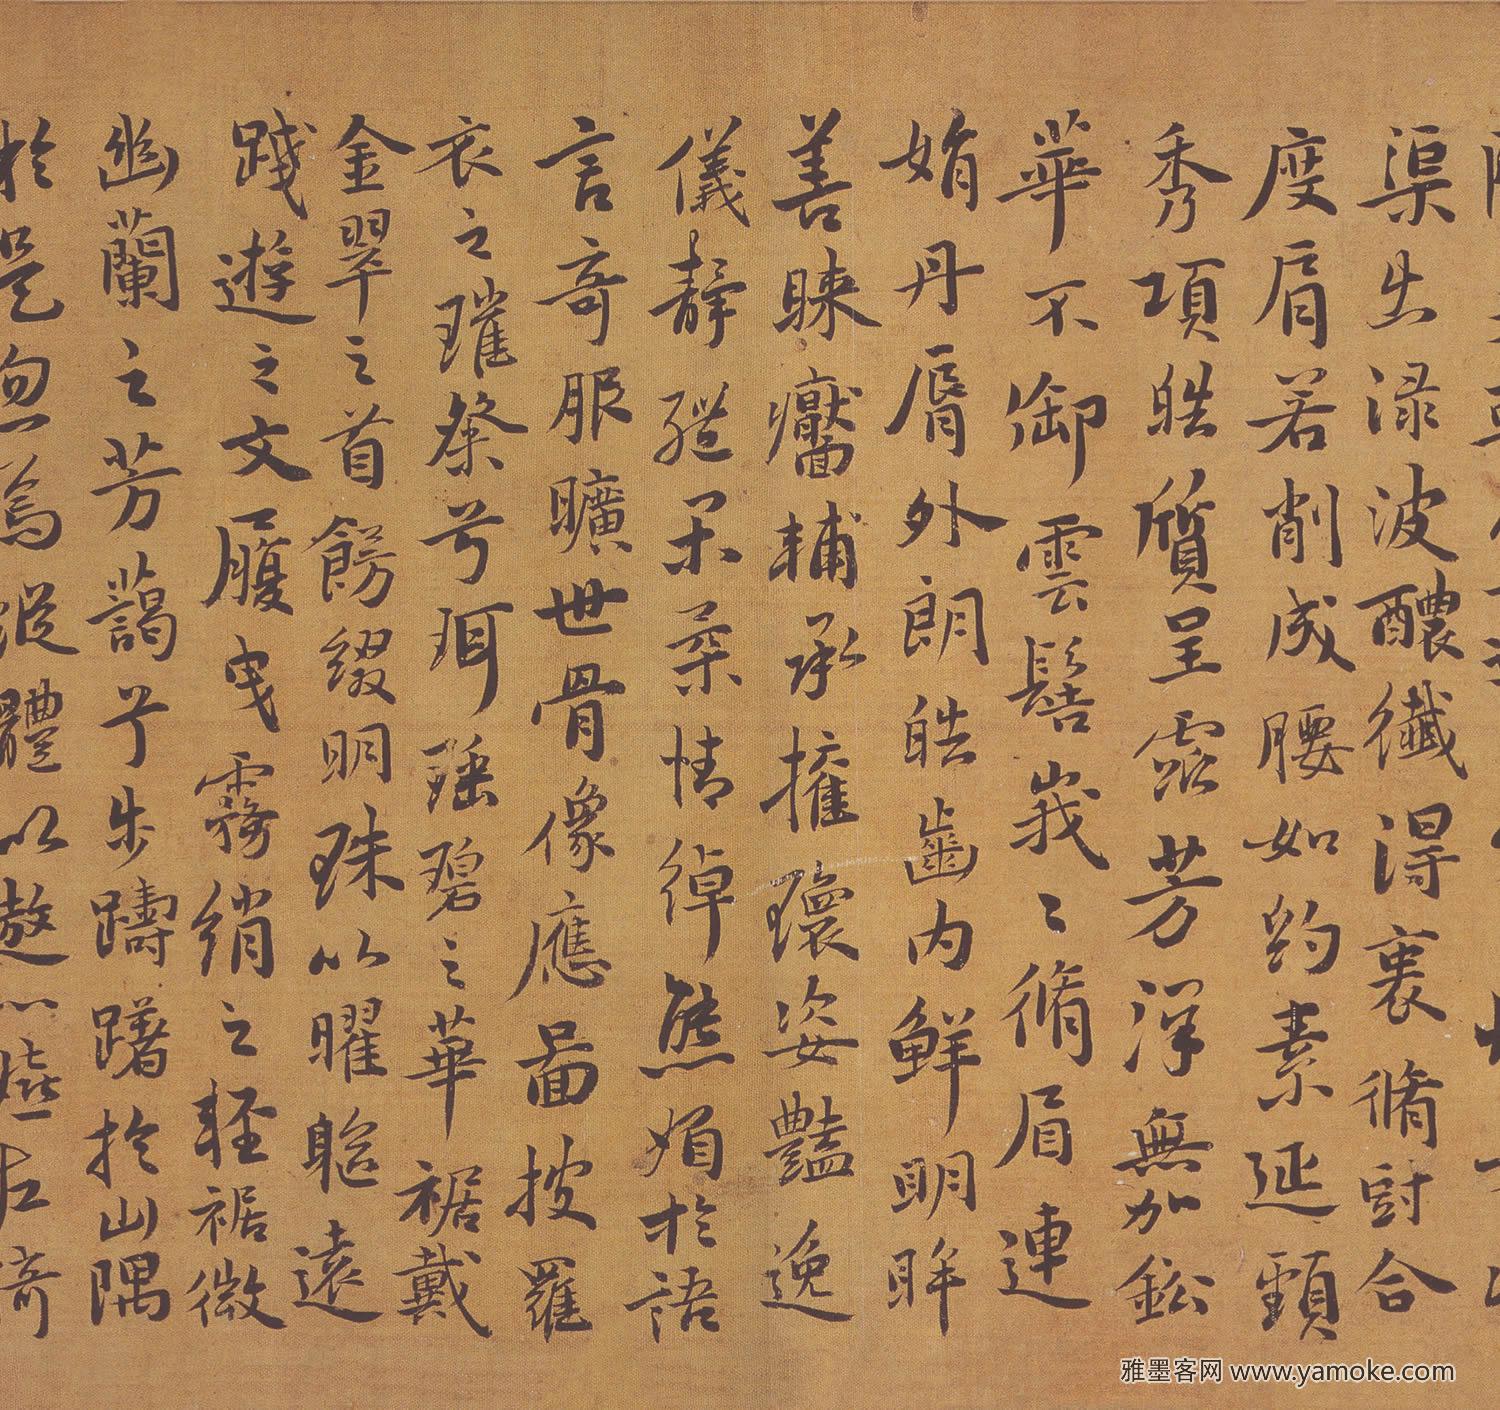 渠出渌波醲纖得裏脩短合
度肩若削成腰如約素延頸
秀項皓質呈露芳澤無加鉛
華不御雲髻峩〻脩眉連
娟丹脣外朗皓齒內鮮明眸
善睞靨輔承權環姿豔逸
儀靜體閑柔情綽態媚於語
言奇服曠世骨像應圖披羅
衣之璀粲兮珥瑤碧之華裾戴
金翠之首飾綴明珠以曜軀遠
踐遊之文履曳霧綃之輕裾微
幽蘭之芳藹兮步躊躇於山隅
於是忽焉縱體以遨以嬉左倚
雅墨客网 www.yamoke.com